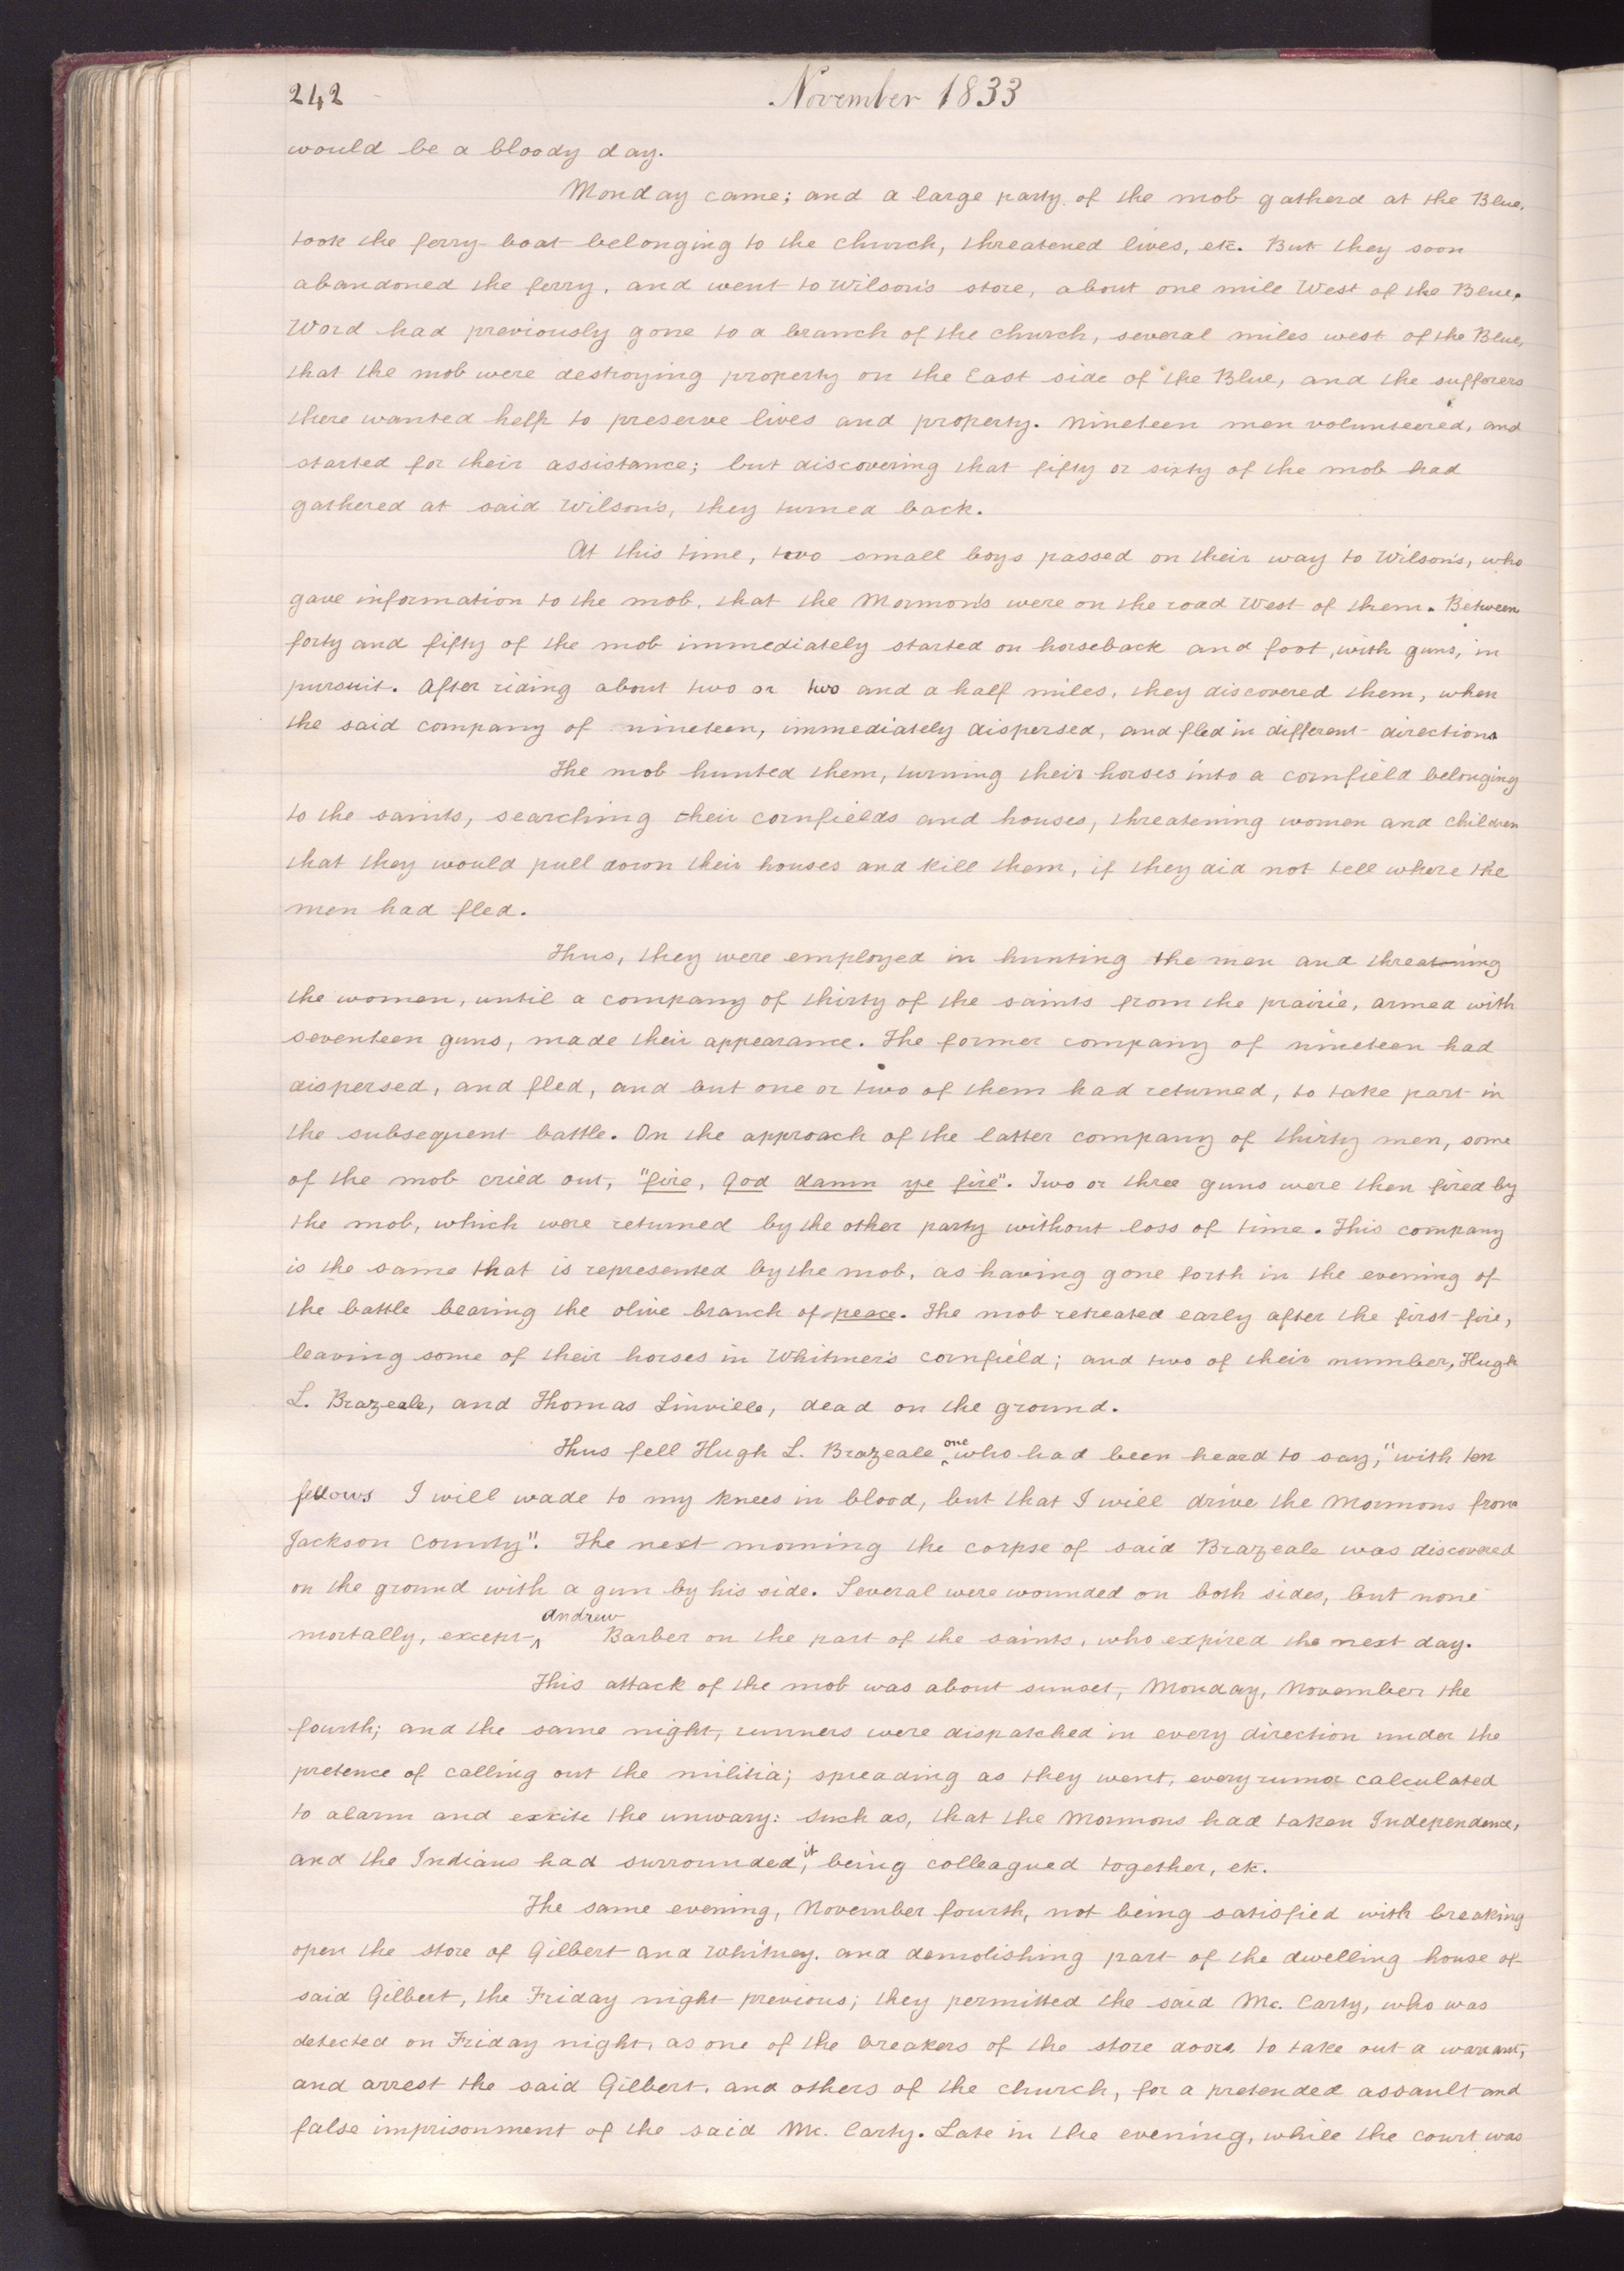 242
November 1833
would be a bloody day.
Monday came; and a large party of the mob gatherd at the Blue,
took the ferry boat belonging to the church, threatened lives, etc. But they soon
abandoned the ferry, and went to Wilson's store, about one mile West of the Blue.
Word had previously gone to a branch of the church, several miles west of the Blue,
that the mob were destroying property on the East side of the Blue, and the sufferers
there wanted help to preserve lives and property. Nineteen men volunteered, and
started for their assistance; but discovering that fifty or sixty of the mob had
gathered at said Wilson's, they turned back.
At this time, two small boys passed on their way to Wilson's, who
gave information to the mob, that the Mormon's were on the road West of them. Between
forty and fifty of the mob immediately started on horseback and foot, with guns, in
pursuit. After riding about two or two and a half miles, they discovered them, when
the said company of nineteen, immediately dispersed, and fled in different directions
The mob hunted them, turning their horses into a cornfield belonging
to the saints, searching their cornfields and houses, threatening women and children
that they would pull down their houses and kill them, if they did not tell where the
men had fled.
Thus, they were employed in hunting the men and threatening
the women, until a company of thirty of the saints from the prairie, armed with
seventeen guns, made their appearance. The former company of nineteen had
dispersed, and fled, and but one or two of them had returned, to take part in
the subsequent battle. On the approach of the latter company of thirty men, some
of the mob cried out, "fire, God damn ye fire". Two or three guns were then fired by
the mob, which were returned by the other party without loss of time. This company
is the same that is represented by the mob, as having gone forth in the evening of
the battle bearing the olive branch of peace. The mob retreated early after the first fire,
leaving some of their horses in Whitmer's cornfield; and two of their number, Hugh
L. Brazeale, and Thomas Linville, dead on the ground.
Thus fell Hugh L. Brazeale ^one who had been heard to say, "with ten
fellows I will wade to my knees in blood, but that I will drive the Mormons from
Jackson County". The next morning the corpse of said Brazeale was discovered
on the ground with a gun by his side. Several were wounded on both sides, but none
mortally, except ^Andrew Barber on the part of the saints, who expired the next day.
This attack of the mob was about sunset, Monday, November the
fourth; and the same night, runners were dispatched in every direction under the
pretence of calling out the militia; spreading as they went, every rumor calculated
to alarm and excite the unwary: such as, that the Mormons had taken Independence,
and the Indians had surrounded it, being colleagued together, etc.
The same evening, November fourth, not being satisfied with breaking
open the store of Gilbert and Whitney, and demolishing part of the dwelling house of
said Gilbert, the Friday night previous; they permitted the said Mc. Carty, who was
detected on Friday night, as one of the breakers of the store doors to take out a warrant,
and arrest the said Gilbert, and others of the church, for a pretended assault and
false imprisonment of the said Mc. Carty. Late in the evening, while the court was